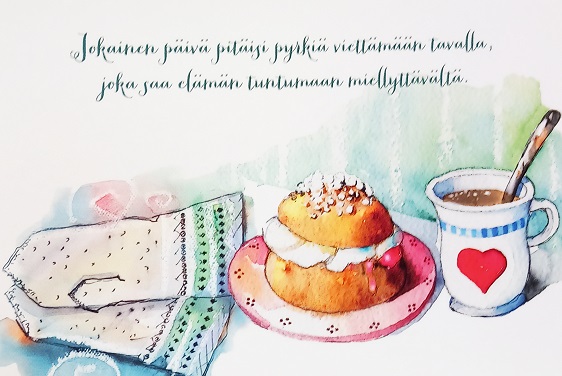 Jokainen päivä pitäisi pyrkiä viettämään tavalla,
joka saa elämän tuntumaan miellyttävältä.